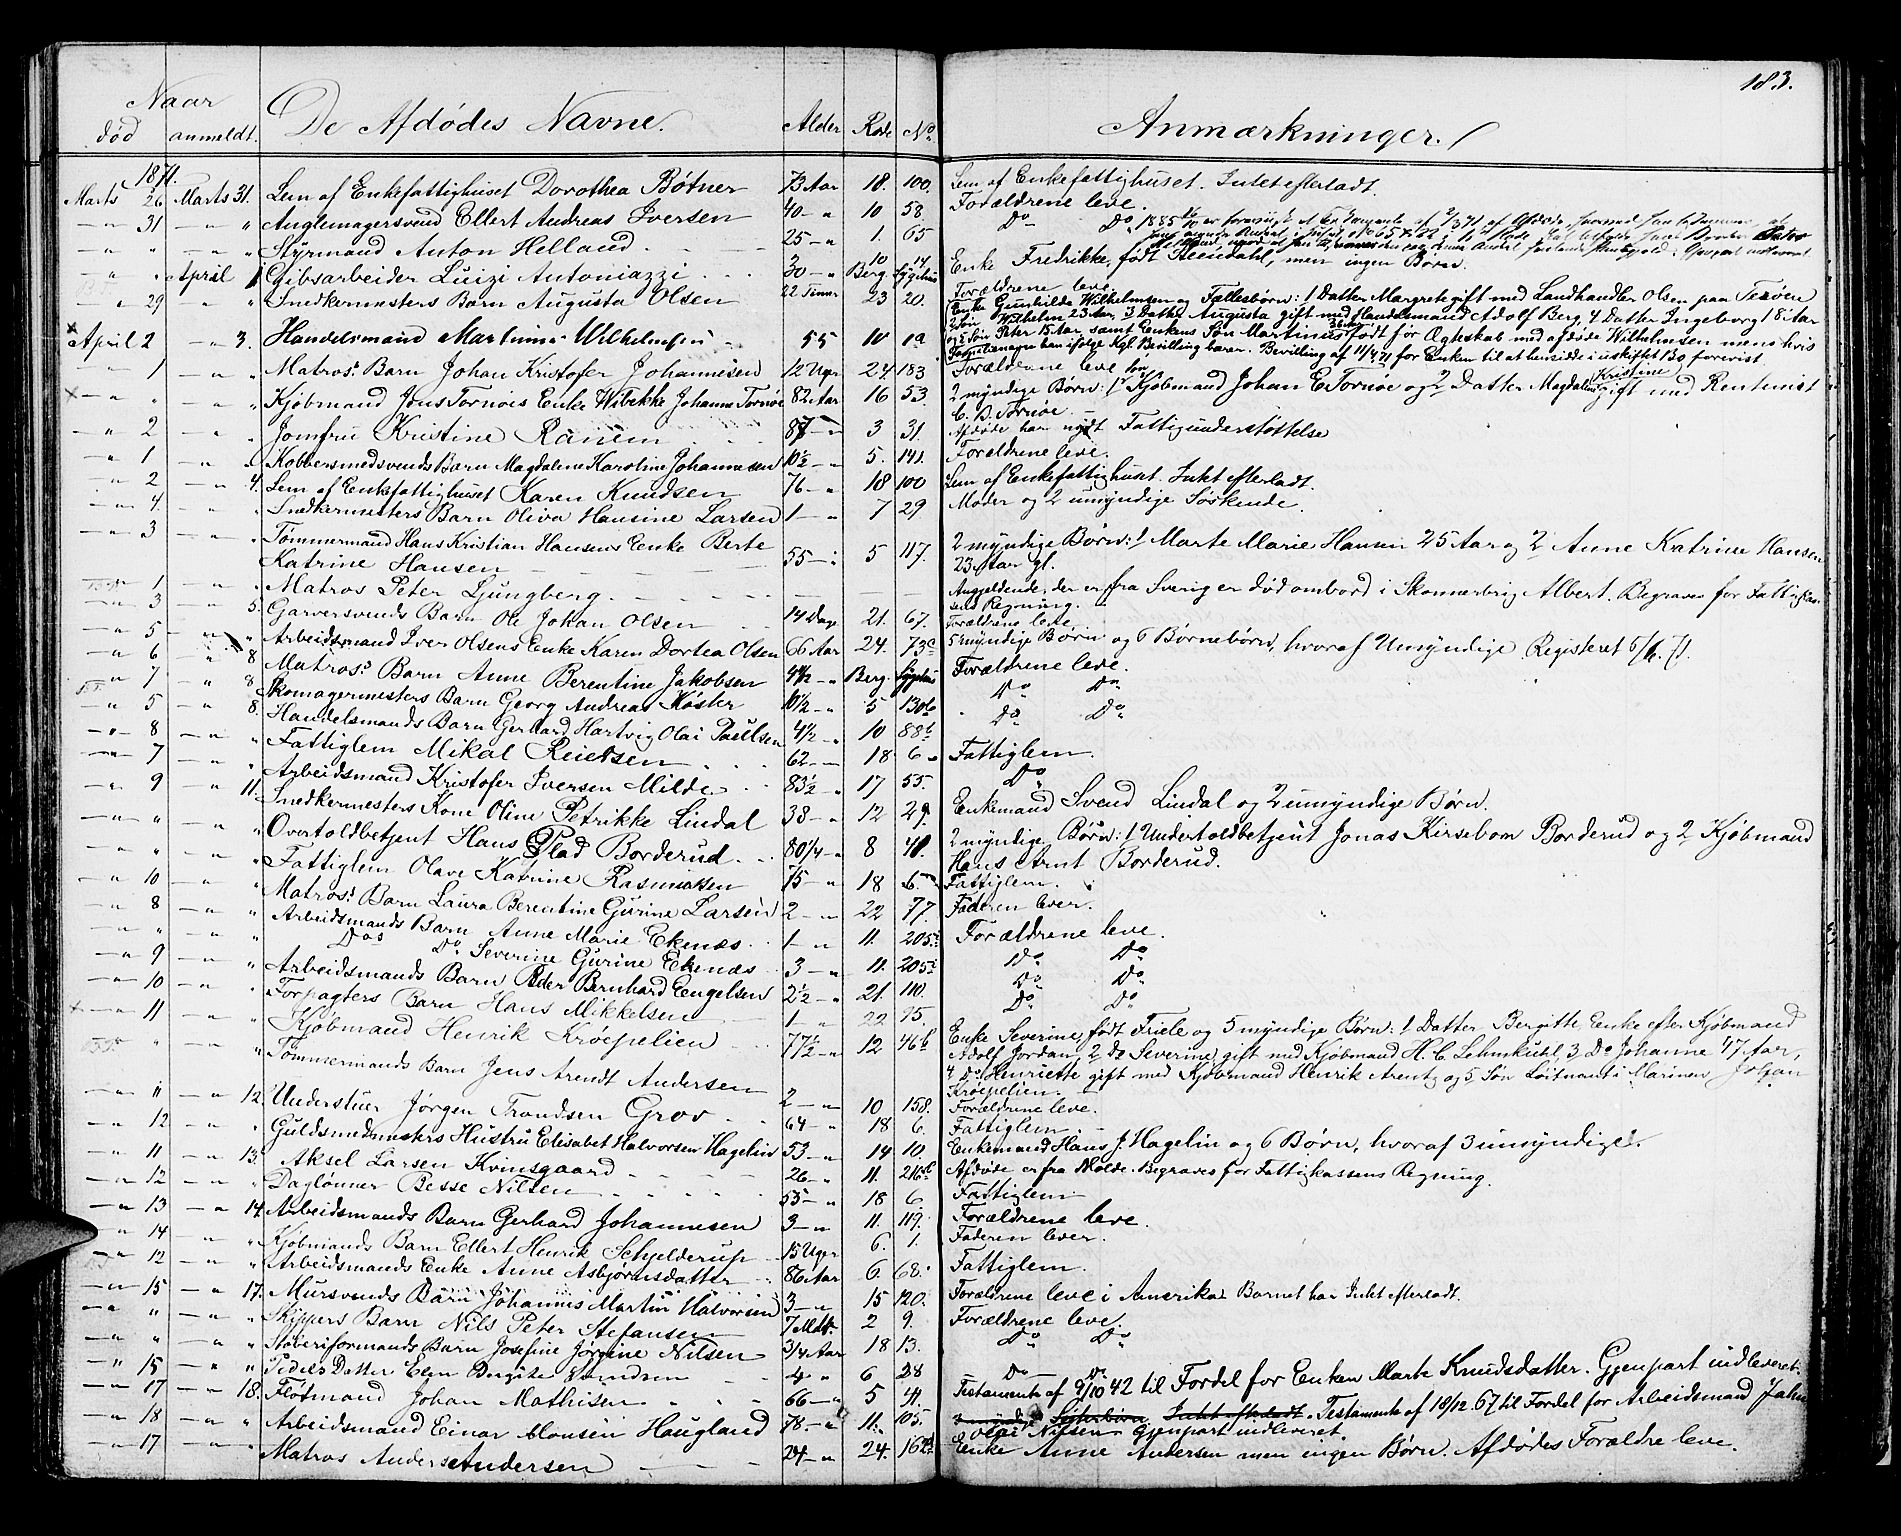 183.
Naar
død anmeldt. De Afdødes Navne. Alder Rode No Anmærkninger.
1871.
Marts 26 Marts 31. Lem af Enkefattighuset Dorothea Bøtner 73 Aar 18. 100. Lem af Enkefattighuset. Intet efterladt.
— " 31 — " " Anglemagersvend Ellert Andreas Iversen 40 — " 10 58. Forældrene leve.
— " " — " " Styrmand Anton Helland. 25 — " 1. 65 Do Do
— " " April 1 Gibsarbeider Luizi Antoniazzi 30 — " Berg. Sygehus Enke Fredrikke, født Steendahl, men ingen Børn.
— " 29 " " Snedkermesters Barn Augusta Olsen 22 Timer 23 20. Forældrene leve.
× April 2 — " 3. Handelsmand Martinus Wilhelmsen 55 10 1a Enke Gunhilde Wilhelmsen og Fællesbørn: 1 Datter Margrete gift med Landhandler Olsen paa Terøen
2 Søn Wilhelm 23 Aar, 3 Datter Augusta gift med Handelsmand Adolf Berg, 4 Datter Ingeborg 18 Aar
og 5 Søn Peter 15 Aar samt Enkens Søn Martinus født før Ægteskab med afdøde Wilhelmsen mens hvis
Familienavn han ifølge Kgl. Bevilling bærer. Bevilling af 11/4 71 for Enken til at hensidde i uskiftet Bo forevist.
— " 1 — " " Matros' Barn Johan Kristofer Johannesen 12 Uger 24. 183 Forældrene leve
× — " " — " " Kjøbmand Jens Tornøes Enke Wibekke Johanne Tornøe 82 Aar 16 53 2 myndige Børn: 1 Søn Kjøbmand Johan E. Tornøe og 2 Datter Magdalene Kristine gift med Rentenist
C. B. Tornøe. —
— " 2 — " " Jomfru Kristine Ranem 87 — " 3 31. Afdøde har nydt Fattigunderstøttelse
— " 1 — " " Kobbersmedsvends Barn Magdalene Karoline Johannesen 10½ — " 5. 141. Forældrene leve.
— " 2 — " 4. Lem af Enkefattighuset Karen Knudsen 76 — " 18 100 Lem af Enkefattighuset. Intet efterladt.
— " 4. — " " Snedkermesters Barn Oliva Hansine Larsen 1 — " 7 29 Moder og 2 umyndige Søskende.
— " 3 — " " Tømmermand Hans Kristian Hansens Enke Berte
Katrine Hansen — — — 55 — " 5 117. 2 myndige Børn: 1 Marte Marie Hansen 25 Aar og 2 Anne Katrine Hansen
23 Aar gl.
— " 1 — " " Matros Peter Ljungberg. — — — Angjeldende, der er fra Sverig er død ombord i Skonnerbrig Albert. Begraves for Fattigkas-
sens Regning.
— " 3 — " 5. Garversvends Barn Ole Johan Olsen 14 Dage 21. 67. Forældrene leve
— " 5 — " " Arbeidsmand Iver Olsens Enke Karen Dortea Olsen 66 Aar 24. 73c 5 myndige Børn og 6 Børnebørn, hvoraf Umyndige. Registeret 6/6. 71.
— " 6 " 8 Matros' Barn Anne Berentine Jakobsen 4½ — " Berg. Sygehus Forældrene leve.
— " 7 " 8 Skomagermesters Barn Georg Andreas Køster 10½ — " 5 130b Do Do
— " 5 — " 8. Handelsmands Barn Gerhard Hartvig Olai Paulsen 4½ — " 10 88b Do Do
— " 8 — " " Fattiglem Mikal Reiersen 62 — 18 6 Fattiglem.
— " 7 — " " Arbeidsmand Kristofer Iversen Milde 83½ — " 17 55. Do
— " 9 — " 11. Snedkermesters Kone Oline Petrikke Lindal 38 — " 12 29. Enkemand Svend Lindal og 2 umyndige Børn.
— " " — " " Overtoldbetjent Hans Plad Borderud 80¼ — " 8 40. 2 myndige Børn: 1 Undertoldbetjent Jonas Kirsebom Borderud og 2 Kjøbmand
Hans Arnt Borderud.
— " " — " " Fattiglem Olave Katrine Rasmusen 75 — " 18 6. Fattiglem.
— " 10 — " " Matros' Barn Laura Berentine Gurine Larsen 2 — " 22 77. Faderen lever.
— " 8 — " " Arbeidsmands Barn Anne Marie Ekenæs 1 — " 11. 205 Forældrene leve.
— " " — " " Dos Do Severine Gurine Ekenæs 3 — " 11. 205 Do Do
— " 9 — " " Arbeidsmands Barn Peder Bernhard Engelsen 2½ — " 21. 110. Do Do
— " 10 — " " Forpagters Barn Hans Mikkelsen 1 " 22 25. Do Do
× — " 11 — " " Kjøbmand Henrik Krøepelien 77½ — " 12 46b Enke Severine, født Friele og 5 myndige Børn: 1 Datter Bergitte Enke efter Kjøbmand
Adolf Jordan, 2 Do Severine, gift med Kjøbmand H. C. Lehmkuhl, 3 Do Johanne 47 Aar,
4 Do Henriette gift med Kjøbmand Henrik Arentz og 5 Søn Løitnant i Marinen Johan
Krøepelien. —
— " " — " " Tømmermands Barn Jens Arendt Andersen 2 — " 10 158. Forældrene leve.
— " " — " 12. Understuer Jørgen Trondsen Grov 64 — " 18 6. Fattiglem.
— " 12 — " " Guldsmedmesters Hustru Elisabet Halvorsen Hagelin 53 — " 14 10. Enkemand Hans J. Hagelin og 6 Børn, hvoraf 3 umyndige.
— " 11 — " 13. Aksel Larsen Kvinsgaard 26 — " 11. 216b Afdøde er fra Molde. Begraves for Fattigkassens Regning.
— " 12 — " " Dagløner Besse Nilsen 55 — " 18 6. Fattiglem
— " 13 — " 14. Arbeidsmands Barn Gerhard Johannesen 3 — " 11. 119. Forældrene leve.
— " 14 — " " Kjøbmands Barn Ellert Henrik Schjelderup 15 Uger 6. 1. Faderen lever.
— " 12 — " " Arbeidsmands Enke Anne Asbjørnsdatter 86 Aar 6. 68. Fattiglem.
— " 15 — " 17. Mursvends Barn Johannes Martin Halvorsen 3 — " 15 120. Forældrene leve i Amerika. Barnet har Intet efterladt.
— " " — " " Skippers Barn Nils Peter Stefansen 7 Mdr. 2 9. Forældrene leve.
— " " — " " Støberiformands Barn Josefine Jørgine Nilsen 3/4 Aar 18 13. Do Do
— " 15 — " " Peders Datter Elen Bergite Svendsen 4 — " 6 28 Do — Do
— " 17 — " 18. Fløtmand Johan Mathisen 66 — " 5 41. Testamente af 9/10 42 til Fordel for Enken Marte Knudsdatter. Gjenpart indleveret.
— " 18 — " " Arbeidsmand Einar Monsen Haugland 78. — " 11. 105. Intet efterladt. Testamente af 18/12. 67 til Fordel for Arbeidsmand Jahn
Olai Nilsen Gjenpart indleveret.
— " 17 — " " Matros Anders Andersen 24 — " 24. 162 Enke Anne Andersen men ingen Børn. Afdødes Forældre leve.